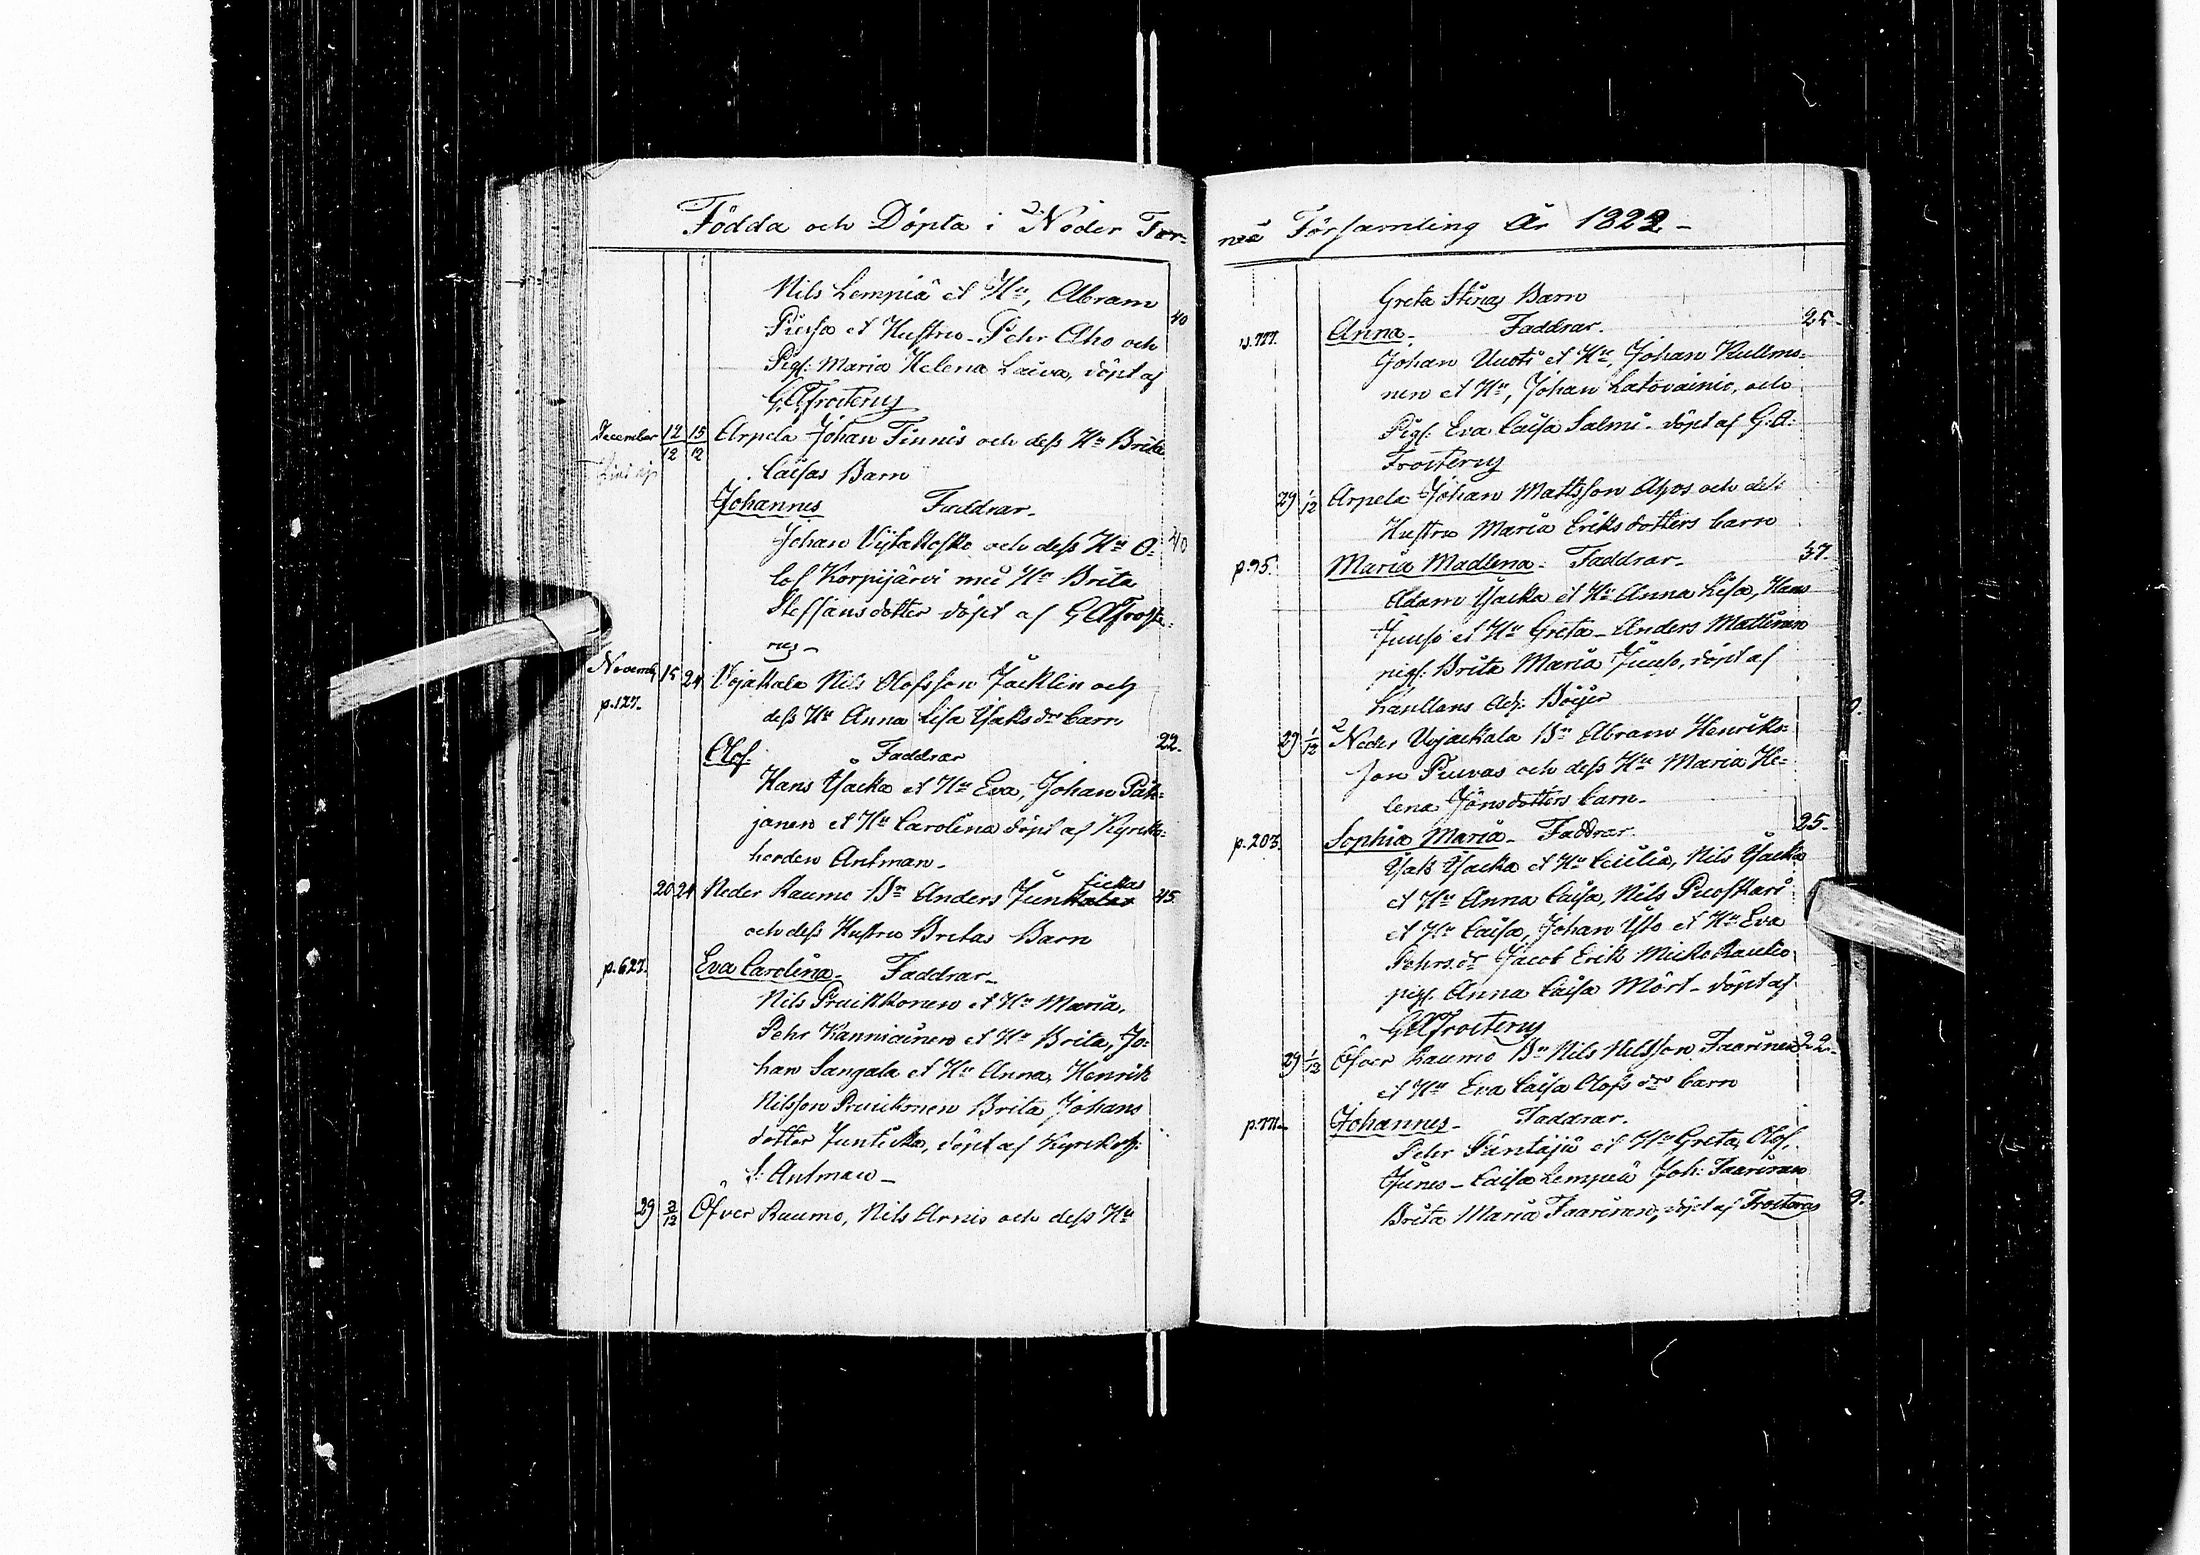 Födda och Döpta i Neder Tor-
Nils Lempiä et Hu, Abram
Hustru - Pehr Aho och 40
Pig: Maria Helena Laiva, döpt af
G.A. Frosterus
December 12/12 15/12 Arpela Johan Finnis och dess Hu Brita
Caisas Barn
Johannes Faddrar -
Johan Vijtakoski och dess Hu O- 40
lof Korpijärvi med Hu Brita
Steffansdotter döpt af G A Froste-
rus -
Novemb 15 24 Vojakkala Nils Olofsson Jacklin och
p.127. dess Hu Anna Lisa Isaks dr barn
Olof. Faddrar 22.
Hans Isacka et Hu Eva, Johan
janen et Hu Carolina döpt af Kyrko-
herden Antman -
20 24 Neder Raumo Bn Anders Juntickas 45.
och dess Hustru Britas Barn
p.627. Eva Carolina - Faddrar -
Nils Pruikkonen et Hu Maria,
Pehr Kanniainen et Hu Brita, Jo-
han Sangala et Hu Anna, Henrik
Nilsson Pruikonen Brita Johans
dotter Junticka, döpt af Kyrkoh:
Antman -
29 2/12 Öfver Raumo, Nils Arnis och dess Hu
neå Församling År 1822. -
Greta Stinas Barn
Anna. Faddrar. 25.
Johan Uuoti et Hu, Johan Kullmo-
nen et Hu, Johan Latovainio, och
Pig: Eva Caisa Salmi - döpt af G: A:
Frosterus
29 1/12 Arpela Johan Mattsson Ahos och des:
Hustru Maria Eriksdotters barn
p.95. Maria Madlena - Faddrar - 37.
Adam Isacka et Hu Anna Lisa, Hans
Juuso et Hu Greta - Anders Mattinen
pig: Brita Maria Juuso, döpt af
Adj: Böijer
29 1/12 Neder Vojackala Bn Abram Henriks-
son Puuvas och dess Hu Maria He-
lena Jönsdotters barn -
p.203. Sophia Maria - Faddrar. 25.
Isak Isacka et Hu Cicilia, Nils Isacka
et Hu Anna Caisa, Nils Puoskari
et Hu Caisa, Johan et Hu Eva
Pehrs dr Jacob Erik Micko Rautio
pig: Anna Caisa Mört - döpt af
G A Frosterus
29 1/12 Öfver Raumo Bn Nils Nilsson Faarinen 22.
et Hu Eva Caisa Olofs drs barn
Johannes - Faddrar.
Pehr Päntäjä et Hu Greta, Olof.
Caisa Lempiä Joh: Faarinen
Brita Maria Faarinen, döpt af Frosterus 9.